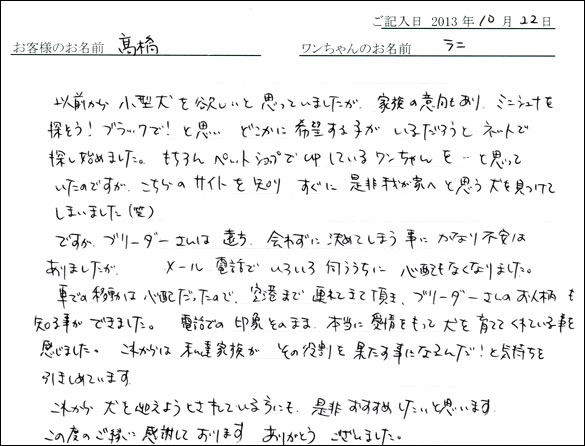 ご記入日 2013年10月22日
お客様のお名前 髙橋 ワンちゃんのお名前 ラニ
以前から小型犬を欲しいと思っていましたが、家族の意向もあり、ミニシュナを
探そう!ブラックで!と思い どこかに希望する子がいるだろうとネットで
探し始めました。もちろんペットショップでupしているワンちゃんを…と思って
いたのですが、こちらのサイトを知り すぐに是非我が家へと思う犬を見つけて
しまいました(笑)
ですが、ブリーダーさんは遠方、会わずに決めてしまう事にかなり不安は
ありましたが、 メール 電話でいろいろ伺ううちに 心配もなくなりました。
車での移動は心配だったので、空港まで連れてきて頂き、ブリーダーさんのお人柄も
知る事ができました。 電話での印象そのまま、本当に愛情をもって犬を育ててくれている事を
感じました。これからは私達家族が その役割を果たす事になるんだ!と気持ちを
引きしめています。
これから犬を迎えようとされている方にも、是非おすすめしたいと思います。
この度のご縁に感謝しております ありがとうございました。